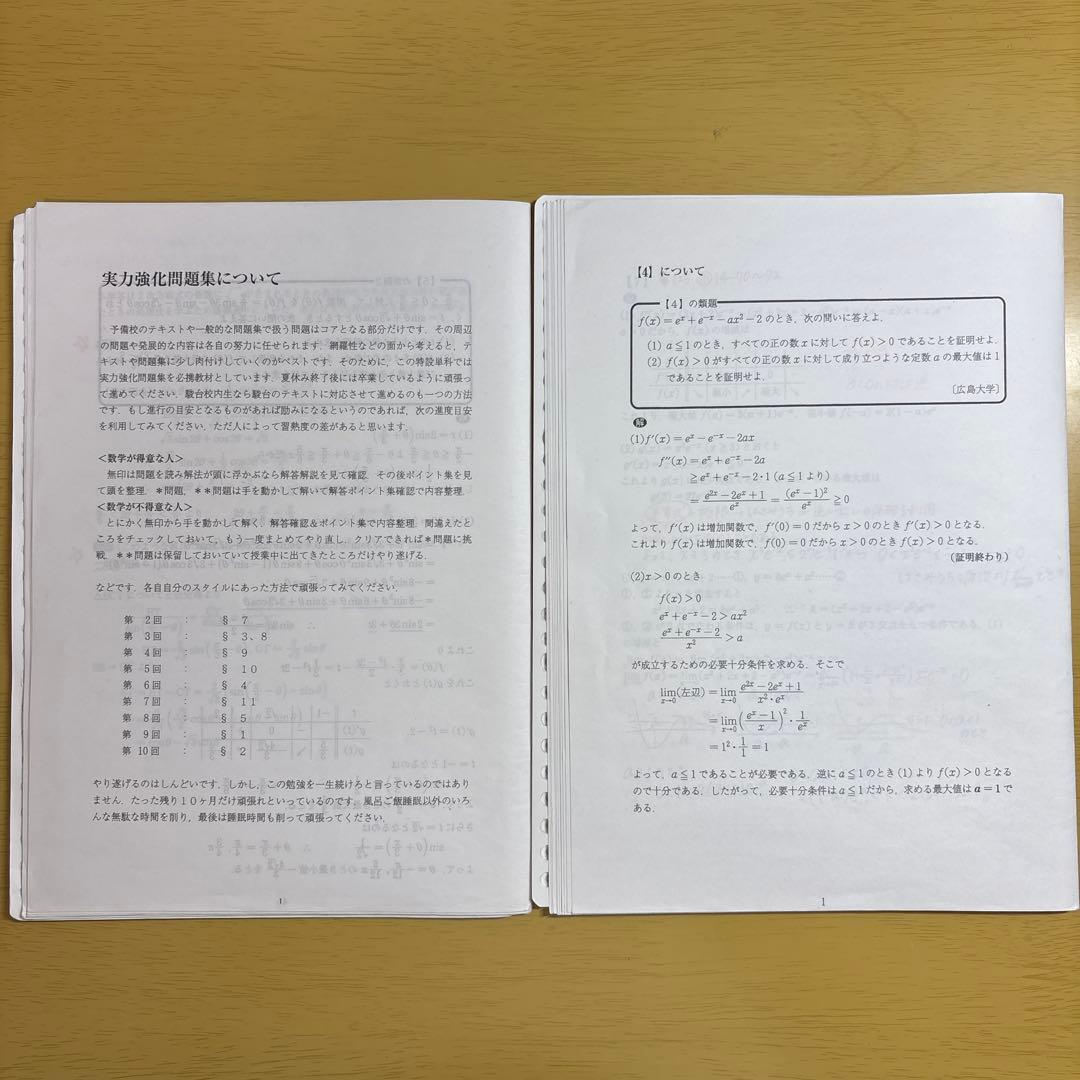 実力強化問題集について
予備校のテキストや一般的な問題集で扱う問題はコアとなる部分だけです．その周辺
の問題や発展的な内容は各自の努力に任せられます．網羅性などの面から考えると，テ
キストや問題集に少し肉付けしていくのがベストです．そのために，この特設単科では
実力強化問題集を必携教材としています．夏休み終了後には卒業しているように頑張
って進めてください．駿台校内生なら駿台のテキストに対応させて進めるのも一つの方法
です．もし進行の目安となるものがあれば励みになるというのであれば，次の進度目安
を利用してみてください．ただ人によって習熟度の差があると思います．
＜数学が得意な人＞
無印は問題を読み解法が頭に浮かぶなら解答解説を見て確認．その後ポイント集を見
て頭を整理．＊問題，＊＊問題は手を動かして解いて解答ポイント集確認で内容整理．
＜数学が不得意な人＞
とにかく無印から手を動かして解く．解答確認＆ポイント集で内容整理．間違えたと
ころをチェックしておいて，もう一度まとめてやり直し．クリアできれば＊問題に挑
戦．＊＊問題は保留しておいていて授業中に出てきたところだけやり遂げる．
などです．各自自分のスタイルにあった方法で頑張ってみてください．
第 2回 ： § 7
第 3回 ： § 3、8
第 4回 ： § 9
第 5回 ： § 10
第 6回 ： § 4
第 7回 ： § 11
第 8回 ： § 5
第 9回 ： § 1
第 10回 ： § 2
やり遂げるのはしんどいです．しかし，この勉強を一生続けろと言っているのではあり
ません．たった残り10ヶ月だけ頑張れといっているのです．風呂ご飯睡眠以外のいろ
んな無駄な時間を削り，最後は睡眠時間も削って頑張ってください．
1
【4】について
【4】の類題
f(x)=e^x+e^{-x}-ax^2-2 のとき，次の問いに答えよ．
(1) a≦1のとき，すべての正の数xに対して f(x)>0 であることを証明せよ．
(2) f(x)>0がすべての正の数xに対して成り立つような定数aの最大値は1
であることを証明せよ．
〔広島大学〕
解
(1) f'(x)=e^x-e^{-x}-2ax
f''(x)=e^x+e^{-x}-2a
≧e^x+e^{-x}-2・1 (a≦1より)
=(e^{2x}-2e^x+1)/e^x=(e^x-1)^2/e^x≧0
よって，f'(x)は増加関数で，f'(0)=0だからx>0のとき f'(x)>0となる．
これより f(x)は増加関数で，f(0)=0だからx>0のとき f(x)>0となる．
（証明終わり）
(2) x>0のとき
f(x)>0
e^x+e^{-x}-2>ax^2
(e^x+e^{-x}-2)/x^2>a
が成立するための必要十分条件を求める．そこで
lim_{x→0}(左辺)=lim_{x→0}(e^{2x}-2e^x+1)/(x^2・e^x)
=lim_{x→0}((e^x-1)/x)^2・1/e^x
=1^2・1/1=1
よって，a≦1であることが必要である．逆にa≦1のとき(1)より f(x)>0となる
ので十分である．したがって，必要十分条件はa≦1だから，求める最大値はa=1で
ある．
1